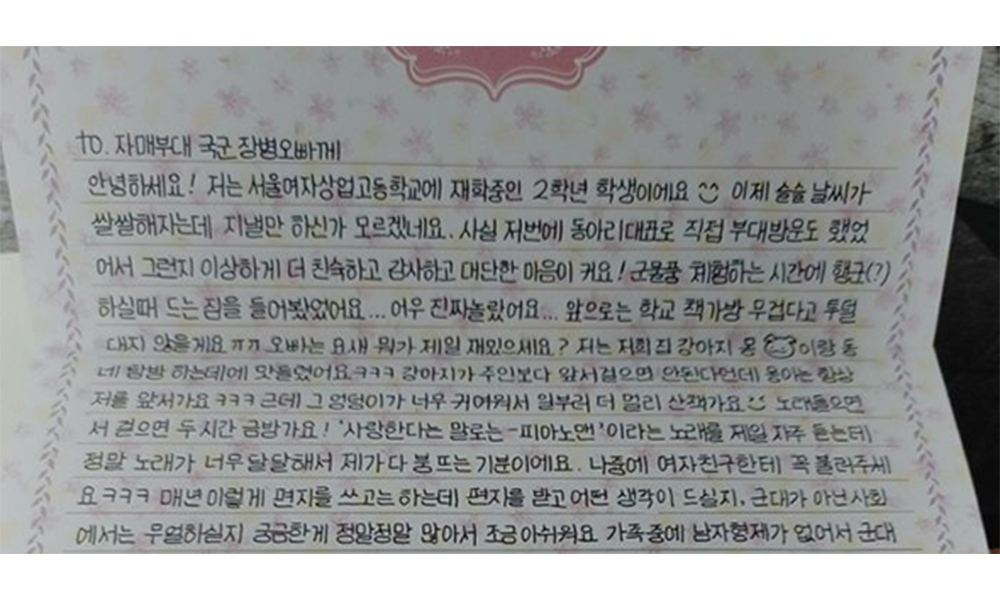 to. 자매부대 국군 장병오빠께
안녕하세요! 저는 서울여자상업고등학교에 재학중인 2학년 학생이에요 이제 슬슬 날씨가
쌀쌀해지는데 지낼만 하신가 모르겠네요. 사실 저번에 동아리대표로 직접 부대방문도 했었
어서 그런지 이상하게 더 친숙하고 감사하고 대단한 마음이 커요! 군물품 체험하는 시간에 행군(?)
하실때 드는 짐을 들어봤었어요... 어우 진짜놀랐어요... 앞으로는 학교 책가방 무겁다고 투덜
대지 않을게요 ㅠㅠ 오빠는 요새 뭐가 제일 재밌으세요? 저는 저희집 강아지 몽이랑 동
네 탐방 하는데에 맛들렸어요ㅋㅋㅋ 강아지가 주인보다 앞서걸으면 안된다던데 몽이는 항상
저를 앞서가요ㅋㅋㅋ 근데 그 엉덩이가 너무 귀여워서 일부러 더 멀리 산책가요 노래들으면
서 걸으면 두시간 금방가요! '사랑한다는 말로는-피아노맨'이라는 노래를 제일 자주 듣는데
정말 노래가 너무 달달해서 제가 다 붕뜨는기분이에요. 나중에 여자친구한테 꼭 불러주세
요ㅋㅋㅋ 매년 이렇게 편지를 쓰고는 하는데 편지를 받고 어떤 생각이 드실지, 군대가 아닌 사회
에서는 무얼하실지 궁금한게 정말정말 많아서 조금 아쉬워요 가족중에 남자형제가 없어서 군대